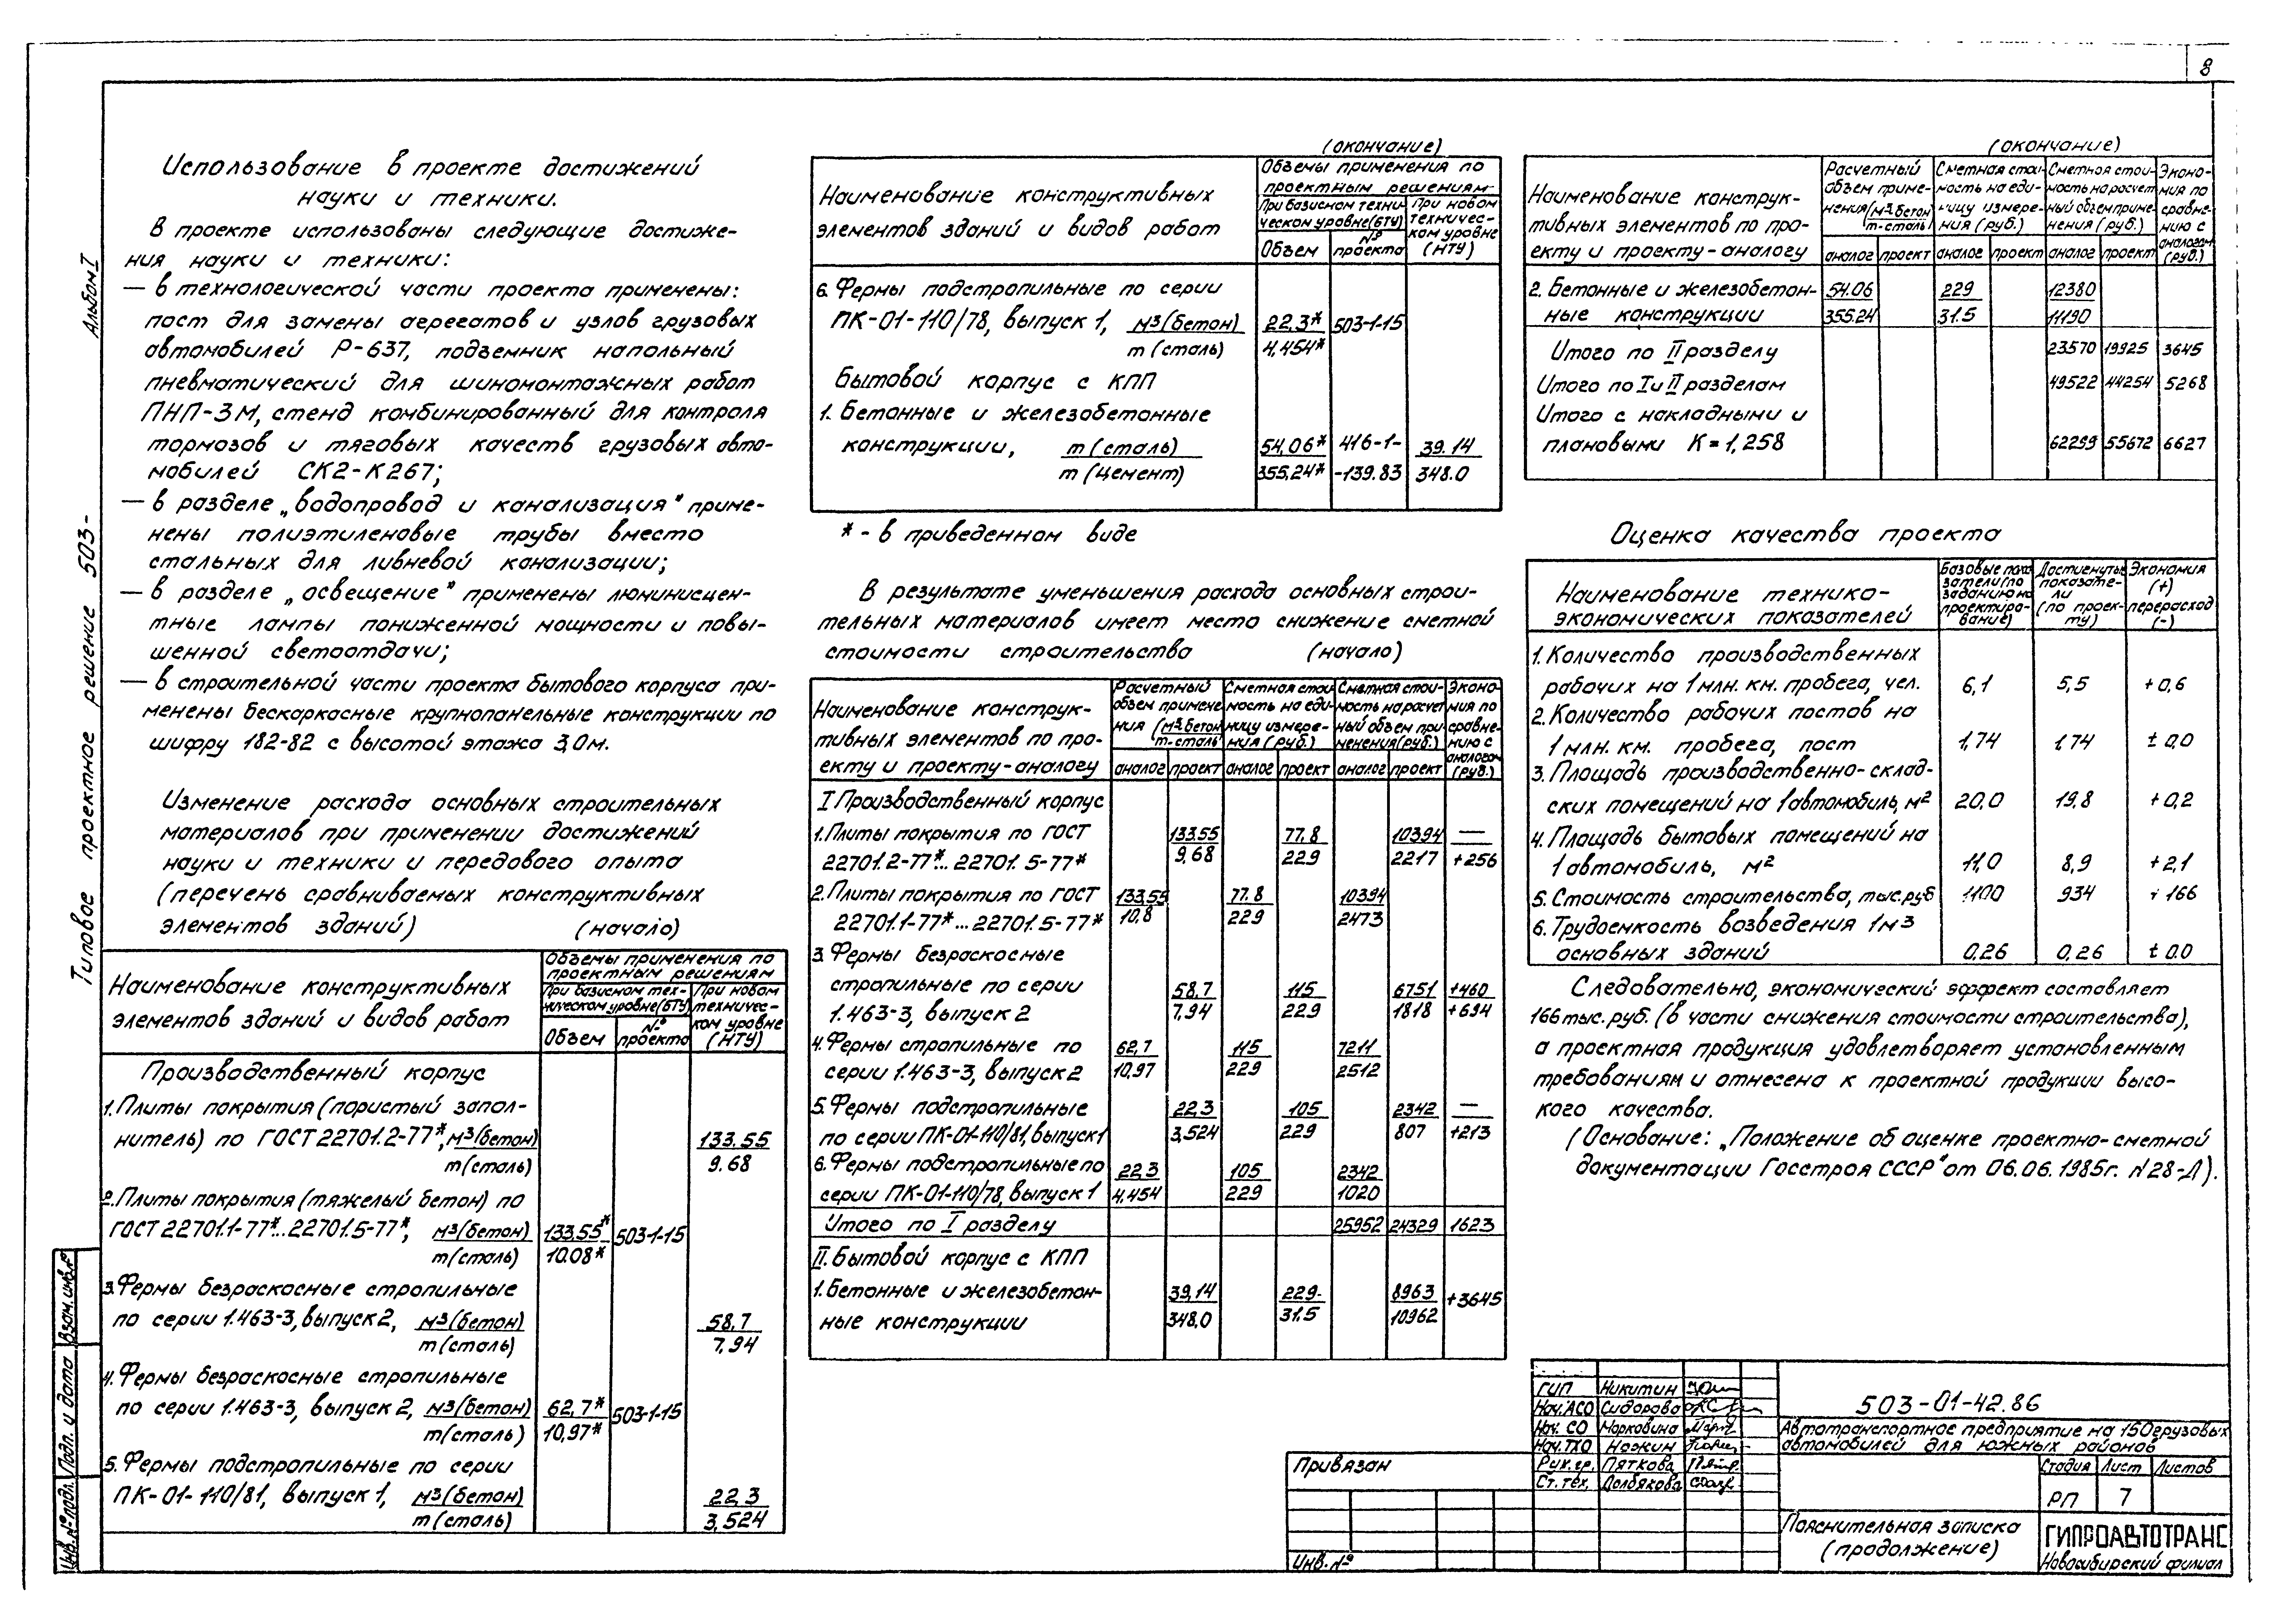 8
Альбом I
Типовое проектное решение 503-
Использование в проекте достижений
науки и техники.
В проекте использованы следующие достиже-
ния науки и техники:
— в технологической части проекта применены:
пост для замены агрегатов и узлов грузовых
автомобилей Р-637, подъемник напольный
пневматический для шиномонтажных работ
ПНП-3М, стенд комбинированный для контроля
тормозов и тяговых качеств грузовых авто-
мобилей СК2-К267;
— в разделе „водопровод и канализация" приме-
нены полиэтиленовые трубы вместо
стальных для ливневой канализации;
— в разделе „освещение" применены люминисцен-
тные лампы пониженной мощности и повы-
шенной светоотдачи;
— в строительной части проекта бытового корпуса при-
менены бескаркасные крупнопанельные конструкции по
шифру 182-82 с высотой этажа 3,0м.
Изменение расхода основных строительных
материалов при применении достижений
науки и техники и передового опыта
(перечень сравниваемых конструктивных
элементов зданий) (начало)
Наименование конструктивных элементов зданий и видов работ
Объемы применения по проектным решениям
При базисном техническом уровне (БТУ) При новом техничес-ком уровне (НТУ)
Объем № проекта
Производственный корпус
1. Плиты покрытия (пористый запол-
нитель) по ГОСТ 22701.2-77*, м³(бетон) 133.55
т(сталь) 9.68
2. Плиты покрытия (тяжелый бетон) по
ГОСТ 22701.1-77*...22701.5-77*, м³(бетон) 133.55* 503-1-15
т(сталь) 10.08*
3. Фермы безраскосные стропильные
по серии 1.463-3, выпуск 2, м³(бетон) 58.7
т(сталь) 7,94
4. Фермы безраскосные стропильные
по серии 1.463-3, выпуск 2, м³(бетон) 62,7* 503-1-15
т(сталь) 10,97*
5. Фермы подстропильные по серии
ПК-01-110/81, выпуск 1, м³(бетон) 22,3
т(сталь) 3,524
(окончание)
Наименование конструктивных
элементов зданий и видов работ
Объемы применения по
проектным решениям
При базисном техни-
ческом уровне (БТУ)
При новом
техничес-
ком уровне
(НТУ)
Объем № проекта
6. Фермы подстропильные по серии
ПК-01-110/78, выпуск 1, м³(бетон) 22,3* 503-1-15
т(сталь) 4,454*
Бытовой корпус с КПП
1. Бетонные и железобетонные
конструкции, т(сталь) 54,06* 416-1- 39.14
т(цемент) 355,24* -139.83 348.0
* - в приведенном виде
В результате уменьшения расхода основных строи-
тельных материалов имеет место снижение сметной
стоимости строительства (начало)
Наименование конструк-
тивных элементов по про-
екту и проекту-аналогу
Расчетный
объем примене-
ния (м³-бетон
т-сталь)
Сметная стои-
мость на еди-
ницу измере-
ния (руб.)
Сметная стои-
мость на расчет
ный объем при-
менения (руб.)
Эконо-
мия по
сравне-
нию с
аналогом
(руб.)
аналог проект аналог проект аналог проект
I Производственный корпус
1. Плиты покрытия по ГОСТ 133.55 77.8 10394 —
22701.2-77*...22701.5-77* 9,68 229 2217 +256
2. Плиты покрытия по ГОСТ 133,55 77.8 10394
22701.1-77*...22701.5-77* 10,8 229 2473
3. Фермы безраскосные
стропильные по серии 58,7 115 6751 +460
1.463-3, выпуск 2 7,94 229 1818 +694
4. Фермы стропильные по 62,7 115 7211
серии 1.463-3, выпуск 2 10,97 229 2512
5. Фермы подстропильные 22,3 105 2342 —
по серии ПК-01-110/81, выпуск 1 3,524 229 807 +213
6. Фермы подстропильные по 22,3 105 2342
серии ПК-01-110/78, выпуск 1 4,454 229 1020
Итого по I разделу 25952 24329 1623
II. Бытовой корпус с КПП
1. Бетонные и железобетон- 39,14 229 8963 +3645
ные конструкции 348,0 31.5 10962
(окончание)
Наименование конструк-
тивных элементов по про-
екту и проекту-аналогу
Расчетный
объем приме-
нения (м³-бетон
т-сталь)
Сметная стои-
мость на еди-
ницу измере-
ния (руб.)
Сметная стои-
мость на расчет
ный объем приме-
нения (руб.)
Эконо-
мия по
сравне-
нию с
аналогом
(руб.)
аналог проект аналог проект аналог проект
2. Бетонные и железобетон- 54.06 229 12380
ные конструкции 355.24 31.5 11190
Итого по II разделу 23570 19925 3645
Итого по I и II разделам 49522 44254 5268
Итого с накладными и
плановыми К=1,258 62299 55672 6627
Оценка качества проекта
Наименование технико-
экономических показателей
Базовые пока
затели (по
заданию на
проектиро-
вание)
Достигнутые
показате-
ли
(по проек-
ту)
Экономия
(+)
перерасход
(-)
1. Количество производственных
рабочих на 1 млн. км. пробега, чел. 6,1 5,5 +0,6
2. Количество рабочих постов на
1 млн. км. пробега, пост 1,74 1,74 ± 0,0
3. Площадь производственно-склад-
ских помещений на 1 автомобиль, м² 20,0 19,8 +0,2
4. Площадь бытовых помещений на
1 автомобиль, м² 11,0 8,9 +2,1
5. Стоимость строительства, тыс.руб 1100 934 + 166
6. Трудоемкость возведения 1 м³
основных зданий 0,26 0,26 ± 0.0
Следовательно, экономический эффект составляет
166 тыс. руб. (в части снижения стоимости строительства),
а проектная продукция удовлетворяет установленным
требованиям и отнесена к проектной продукции высо-
кого качества.
(Основание: „Положение об оценке проектно-сметной
документации Госстроя СССР" от 06.06.1985г. №28-Д).
ГИП Никитин
Нач.АСО Сидорова
Нач. СО Морковина
Нач.ТХО Ножин
Рук.гр. Пяткова
Ст.тех. Долбякова
503-01-42.86
Автотранспортное предприятие на 150 грузовых
автомобилей для южных районов
Стадия Лист Листов
РП 7
Пояснительная записка
(продолжение)
ГИПРОАВТОТРАНС
Новосибирский филиал
Привязан
Инв. №
Взам. инв. №
Подп. и дата
Инв. № подл.